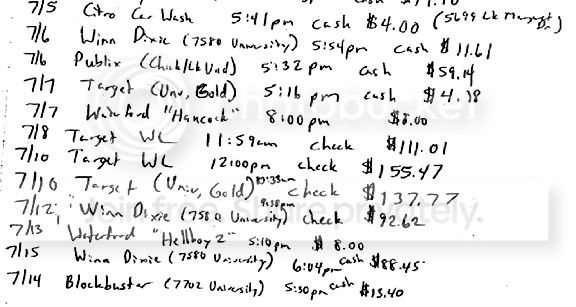 7/5 Citro Car Wash 5:41pm cash $4.00 (5699 Lk Margaret Dr.)
7/6 Winn Dixie (7580 University) 5:54pm cash $11.61
7/6 Publix (Chick/Lk Und) 5:32 pm cash $59.14
7/7 Target (Univ, Gold) 5:16 pm cash $4.18
7/7 Waterford "Hancock" 8:00 pm $8.00
7/8 Target WL 11:59am check $111.01
7/10 Target WL 12:00pm check $155.47
7/10 Target (Univ, Gold) check $137.77
7/12 Winn Dixie (7580 University) 9:38pm check $92.62
7/13 Waterford "Hellboy 2" 5:10pm $8.00
7/15 Winn Dixie (7580 University) 6:04pm cash $88.45
7/14 Blockbuster (7702 University) 5:50pm cash $13.40